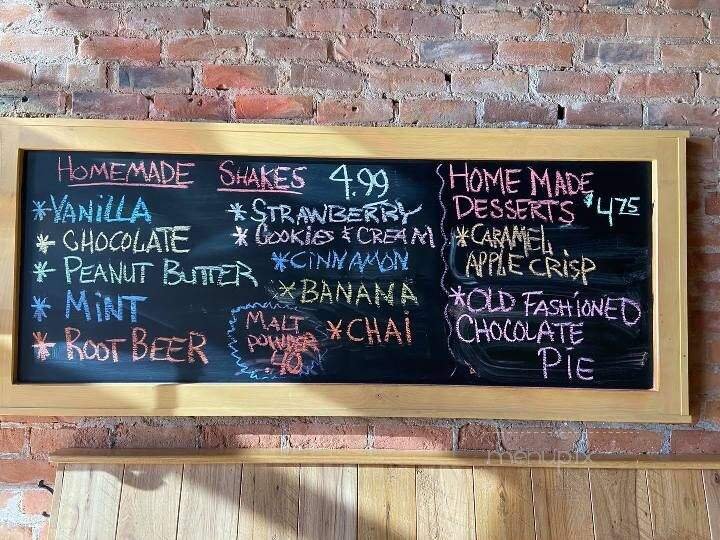 HOMEMADE SHAKES 4.99
*VANILLA
*CHOCOLATE
*PEANUT BUTTER
*MINT
*ROOT BEER
*STRAWBERRY
*COOKIES & CREAM
*CINNAMON
*BANANA
*CHAI
MALT
POWDER
.40
HOME MADE
DESSERTS $4.75
*CARAMEL
APPLE CRISP
*OLD FASHIONED
CHOCOLATE
PIE
menupix